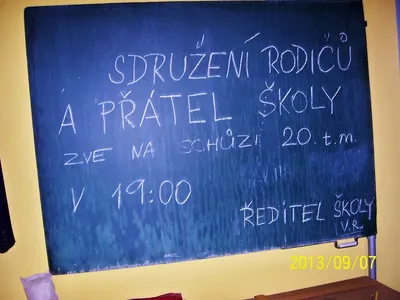 SDRUŽENÍ RODIČŮ
A PŘÁTEL ŠKOLY
ZVE NA SCHŮZI 20. t.m.
V 19:00
ŘEDITEL ŠKOLY
V.R.
2013/09/07